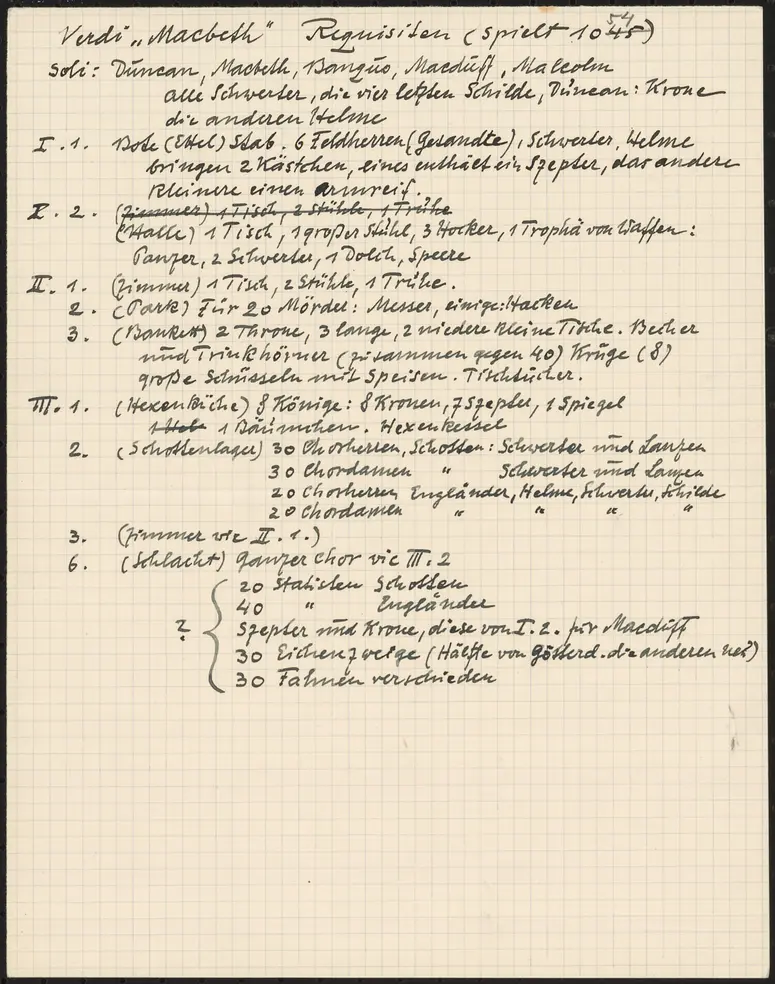 Verdi „Macbeth" Requisiten (spielt 1045) 54
Soli: Duncan, Macbeth, Banquo, Macduff, Malcolm
alle Schwerter, die vier letzten Schilde, Duncan: Krone
die anderen Helme
I. 1. Bote (Ettel) Stab. 6 Feldherren (Gesandte), Schwerter, Helme
bringen 2 Kästchen, eines enthält ein Szepter, das andere
kleinere einen Armreif.
2. (Zimmer) 1 Tisch, 2 Stühle, 1 Truhe
(Halle) 1 Tisch, 1 großer Stuhl, 3 Hocker, 1 Trophä von Waffen:
Panzer, 2 Schwerter, 1 Dolch, Speere
II. 1. (Zimmer) 1 Tisch, 2 Stühle, 1 Truhe.
2. (Park) Für 20 Mörder: Messer, einige: Hacken
3. (Bankett) 2 Throne, 3 lange, 2 niedere kleine Tische. Becher
und Trinkhörner (zusammen gegen 40) Krüge (8)
große Schüsseln mit Speisen. Tischtücher.
III. 1. (Hexenküche) 8 Könige: 8 Kronen, 7 Szepter, 1 Spiegel
1 Bäumchen. Hexenkessel
2. (Schottenlager) 30 Chorherren, Schotten: Schwerter und Lanzen
30 Chordamen " Schwerter und Lanzen
20 Chorherren Engländer, Helme, Schwerter, Schilde
20 Chordamen " " " "
3. (Zimmer wie II. 1.)
6. (Schlacht) ganzer Chor wie III. 2
20 Statisten Schotten
40 " Engländer
? Szepter und Krone, diese von I. 2. für Macduff
30 Eichenzweige (Hälfte von Götterd. die anderen neu)
30 Fahnen verschieden